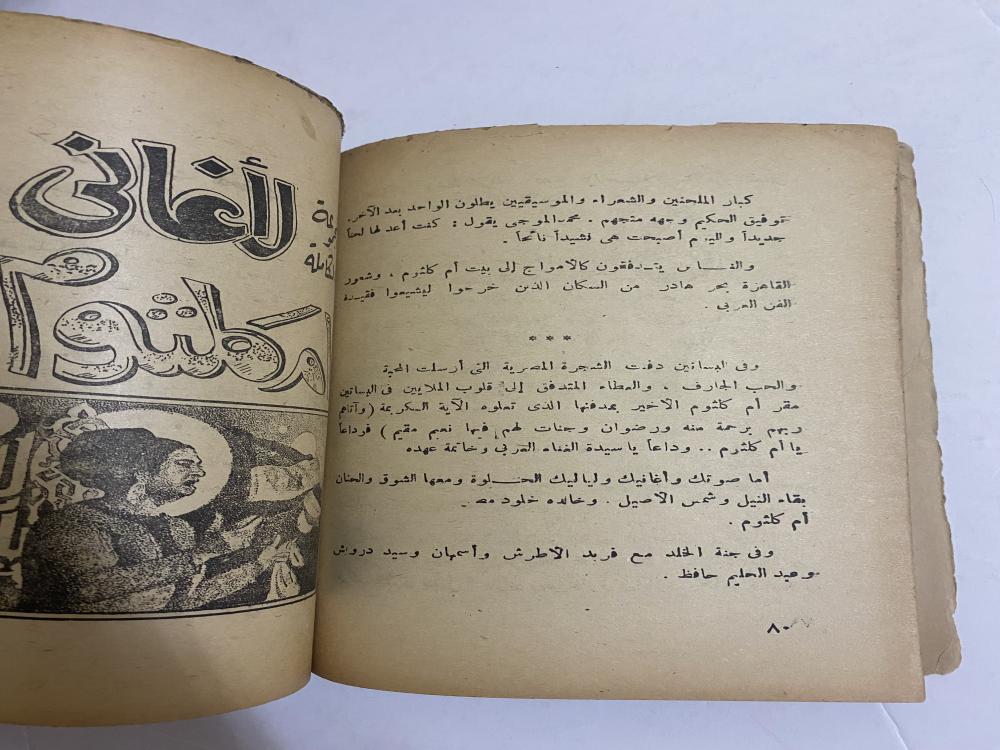 كبار الملحنين والشعراء والموسيقيين يطلون الواحد بعد الآخر.
توفيق الحكيم وجهه متجهم . محمد الموجي يقول : كنت أعد لها لحناً
جديداً واليوم أصبحت هى نشيداً نائحاً .
والنـاس يتدفقون كالامواج إلى بيت أم كلثوم ، وشعور
القاهرة بحر هادر من السكان الذين خرجوا ليشيعوا فقيدة
الفن العربي .
* * *
وفى البساتين دفنت الشجرة المصرية التى أرسلت المحبة
والحب الجارف ، والعطاء المتدفق إلى قلوب الملايين فى البساتين
مقر أم كلثوم الأخير بمدفنها الذى تعلوه الآية السكريمة ( وآتاهم
ربهم برحمة منه ورضوان وجنات لهم فيها نعيم مقيم ) فوداعاً
يا أم كلثوم .. وداعاً يا سيدة الغناء العربي وخاتمة عهده
أما صوتك وأغانيك ولياليك الحـلوة ومعها الشوق والحنان
بقاء النيل وشمس الاصيل . وخالده خلود
أم كلثوم .
وفى جنة الخلد مع فريد الأطرش وأسمهان وسيد درويش
وعبد الحليم حافظ .
٨٠
لأغانى
أم كلثوم